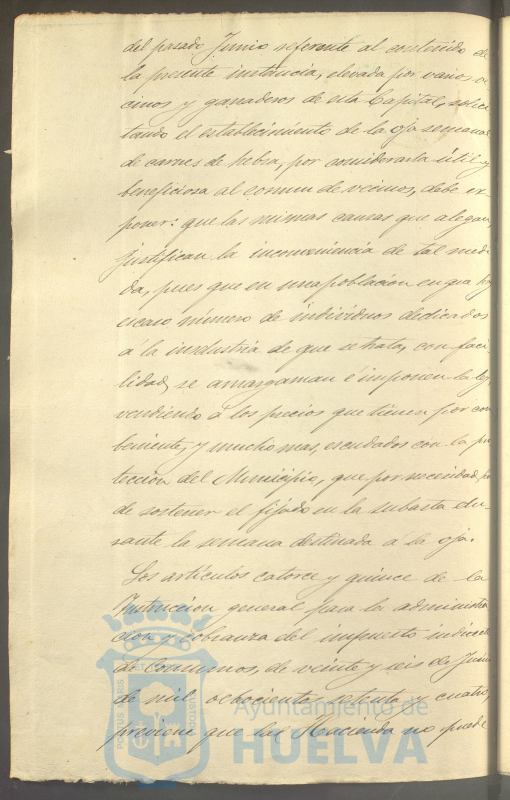 del pasado Junio referente al contenido de
la presente instancia, elevada por varios ve
cinos y ganaderos de esta Capital, solici
tando el establecimiento de la oja semanal
de carnes de hebra, por considerarla útil y
beneficiosa al comun de vecinos, debe ex
poner: que las mismas causas que alegan,
justifican la inconveniencia de tal medi
da, pues que en una poblacion en que hay
escaso número de individuos dedicados
á la industria de que se trata, con faci
lidad, se amargaman é imponen la ley,
vendiendo á los precios que tienen por con
beniente, y mucho mas, escudados con la pro
teccion del Municipio, que por necesidad ha
de sostener el fijado en la subasta du-
rante la semana destinada á la oja.
Los artículos catorce y quince de la
Instruccion general para la administra
cion y cobranza del impuesto indirecto
de Consumos, de veinte y seis de Junio
de mil ochocientos setenta y cuatro,
previene que la Hacienda no puede
PORTUS MARIS
CUSTODIA
Ayuntamiento de
HUELVA